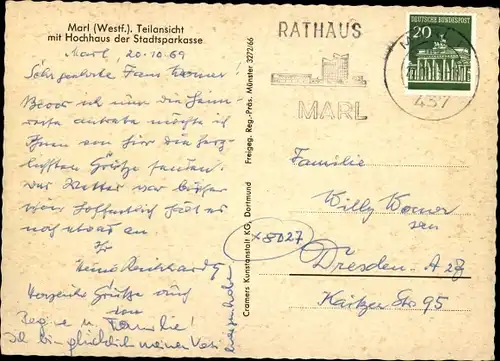 Marl (Westf.). Teilansicht
mit Hochhaus der Stadtsparkasse
Marl, 20.10.69
Sehr geehrte Fam. Werner!
Bevor ich nun die Heim-
reise antrete möchte ich
Ihnen von hier die herz-
lichsten Grüße senden.
Das Wetter war bisher
schön hoffentlich hält es
noch etwas an
Ihr
Heinz Reinhardt
Herzliche Grüße auch
von
Regine u. Familie!
Ich bin glücklich meinen Vati
Cramers Kunstanstalt KG, Dortmund
Freigeg. Reg.-Präs. Münster 3272/66
RATHAUS
MARL
437
DEUTSCHE BUNDESPOST
20
Familie
Willy Werner
sen
x8027
Dresden-A 27
Kaitzer Str 95